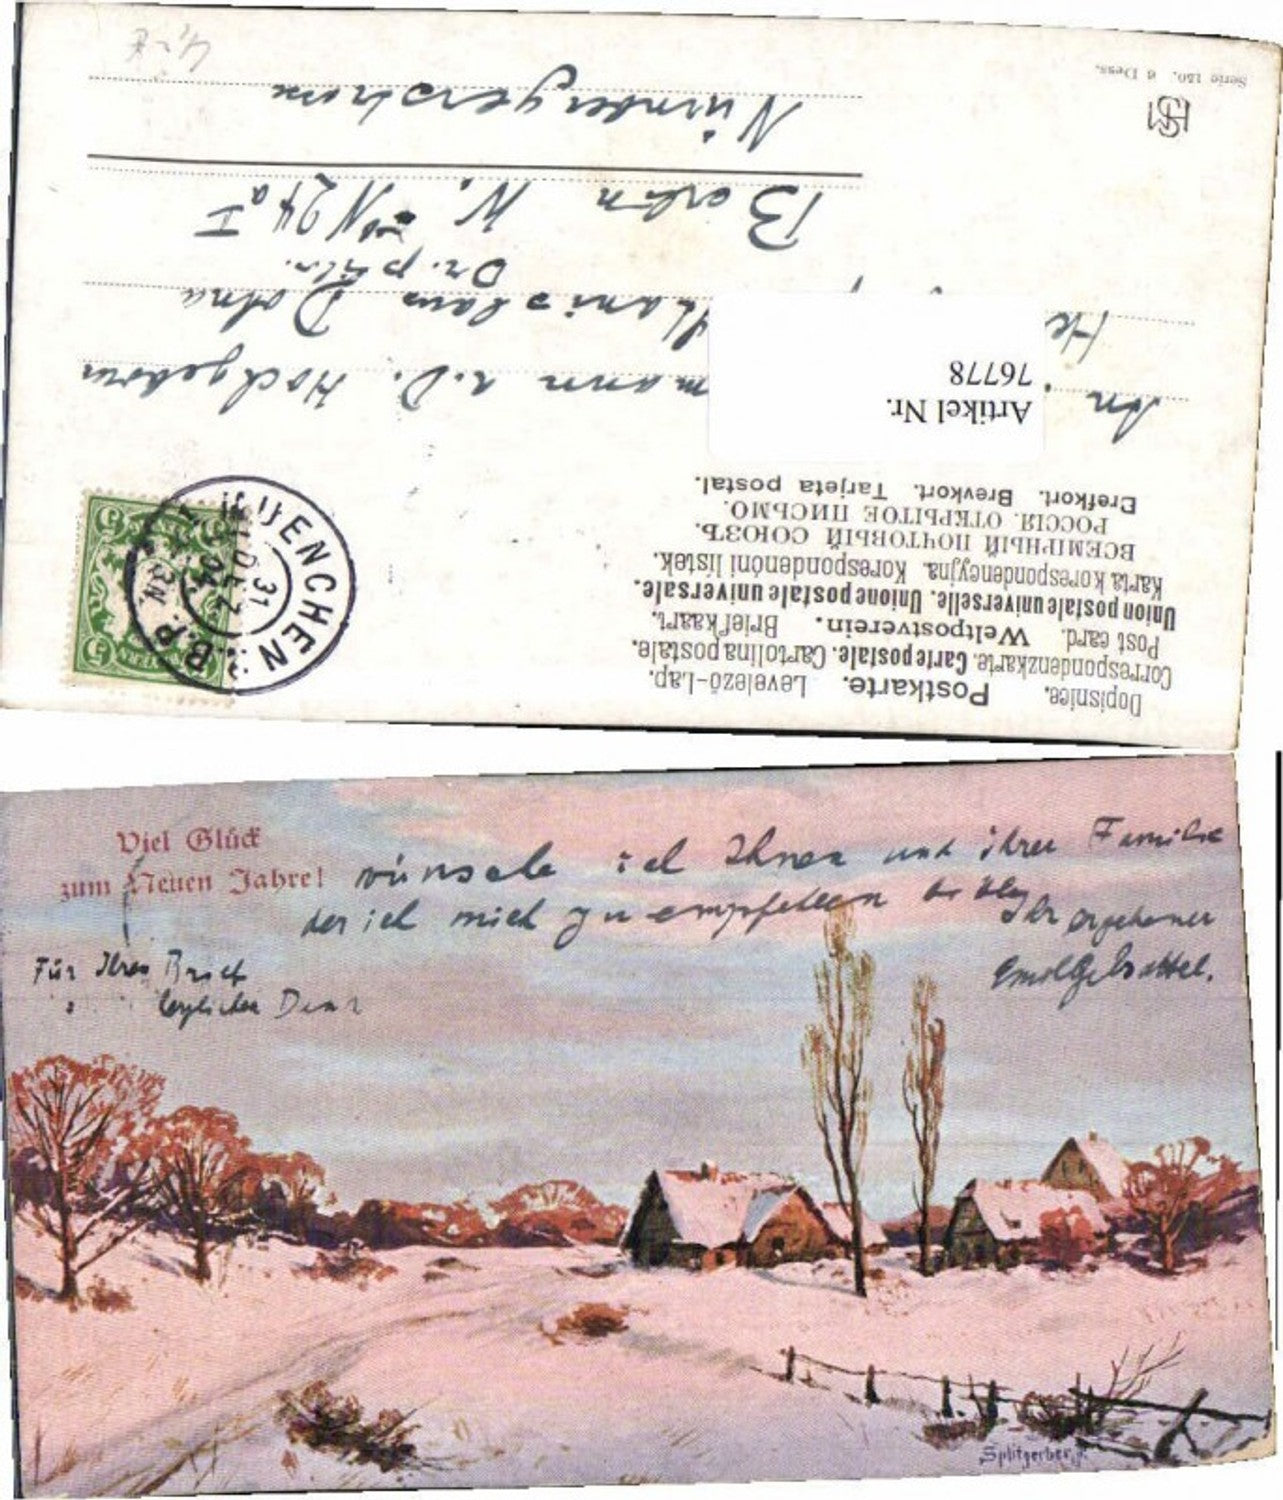 Dopisnice. Postkarte. Levelező-Lap.
Correspondenzkarte. Carte postale. Cartolina postale.
Post card. Weltpostverein. Briefkaart.
Union postale universelle. Unione postale universale.
Karta korespondencyjna. Korespondenční lístek.
ВСЕМІРНЫЙ ПОЧТОВЫЙ СОЮЗЪ.
РОССІЯ. ОТКРЫТОЕ ПИСЬМО.
Brefkort. Brevkort. Tarjeta postal.
MÜNCHEN
31 DEZ
04
B.P.
5 5
Artikel Nr.
76778
An mann a.D. Hochgeborn
He Dohna
Dr. phil.
Berlin W. N 24a I
Nürnbergerstrasse
Serie 150. 6 Dess.
Viel Glück
zum Neuen Jahre! wünsche ich Ihnen und ihrer Familie
der ich mich zu empfehlen
Ihr ergebener
Für Ihren Brief
herzlichen Dank
Splitgerber